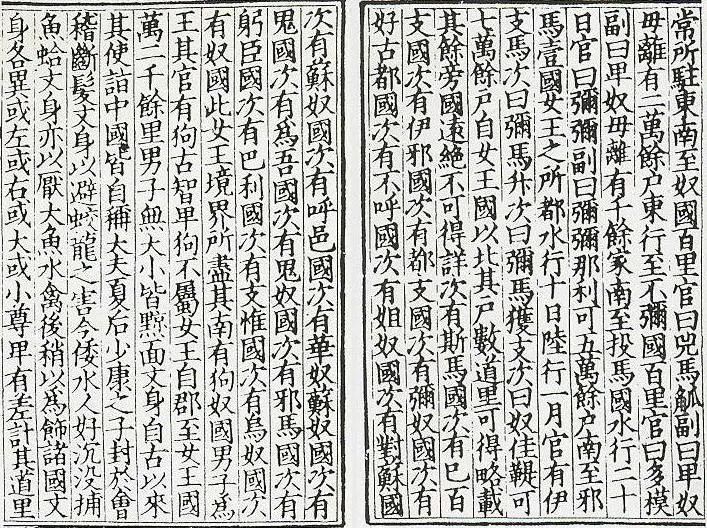 常所駐東南至奴國百里官曰兕馬觚副曰卑奴
毋離有二萬餘户東行至不彌國百里官曰多模
副曰卑奴毋離有千餘家南至投馬國水行二十
日官曰彌彌副曰彌彌那利可五萬餘户南至邪
馬壹國女王之所都水行十日陸行一月官有伊
支馬次曰彌馬升次曰彌馬獲支次曰奴佳鞮可
七萬餘户自女王國以北其户數道里可得略載
其餘旁國遠絶不可得詳次有斯馬國次有巳百
支國次有伊邪國次有都支國次有彌奴國次有
好古都國次有不呼國次有姐奴國次有對蘇國
次有蘇奴國次有呼邑國次有華奴蘇奴國次有
鬼國次有爲吾國次有鬼奴國次有邪馬國次有
躬臣國次有巴利國次有支惟國次有烏奴國次
有奴國此女王境界所盡其南有狗奴國男子爲
王其官有狗古智卑狗不屬女王自郡至女王國
萬二千餘里男子無大小皆黥面文身自古以來
其使詣中國皆自稱大夫夏后少康之子封於會
稽斷髮文身以避蛟龍之害今倭水人好沉没捕
魚蛤文身亦以厭大魚水禽後稍以爲飾諸國文
身各異或左或右或大或小尊卑有差計其道里